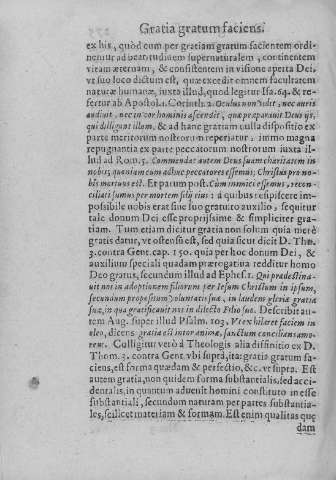 Gratia gratum faciens.
ex his, quòd cum per gratiam gratum facientem ordi-
nemur ad beatitudinem supernaturalem, continentem
vitam æternam, & consistentem in visione aperta Dei,
vt suo loco dictum est, quæ excedit omnem facultatem
naturæ humanæ, iuxta illud, quod legitur Isa. 64. & re-
fertur ab Apostol. 1. Corinth. 2. Oculus non vidit, nec auris
audiuit, nec in cor hominis ascendit, quæ præparauit Deus ijs,
qui diligunt illum, & ad hanc gratiam nulla dispositio ex
parte meritorum nostrorum reperiatur: immo magna
repugnantia ex parte peccatorum nostrorum iuxta il-
lud ad Rom. 5. Commendat autem Deus suam charitatem in
nobis, quoniam cum adhuc peccatores essemus, Christus pro no-
bis mortuus est. Et parum post. Cum inimici essemus, recon-
ciliati sumus per mortem filij eius: à quibus respiscere im-
possibile nobis erat sine suo gratuito auxilio, sequitur
tale donum Dei esse propriissime & simpliciter gra-
tiam. Tum etiam dicitur gratia non solum quia merè
gratis datur, vt ostensũ est, sed quia sicut dicit D. Tho.
3. contra Gent. cap. 150. quia per hoc donum Dei, &
auxilium speciali quadam prærogatiua redditur homo
Deo gratus, secundum illud ad Ephes. 1. Qui prædestina-
uit nos in adoptionem filiorum per Iesum Christum in ipsum,
secundum propositum voluntatis suæ, in laudem gloriæ gratiæ
suæ, in qua gratificauit nos in dilecto Filio suo. Describit au-
tem Aug. super illud Psalm. 103. Vt exhilaret faciem in
oleo, dicens gratia est interanimæ, sanctum concilians amo-
rem. Colligitur verò à Theologis alia diffinitio ex D.
Thom. 3. contra Gent. vbi suprà, ita: gratia gratum fa-
ciens, est forma quædam & perfectio, &c. vt supra. Est
autem gratia, non quidem forma substantialis, sed acci-
dentalis, in quantum aduenit homini constituto in esse
substantiali, secundum naturam per partes substantia-
les, scilicet materiam & formam. Est enim qualitas quę
dam